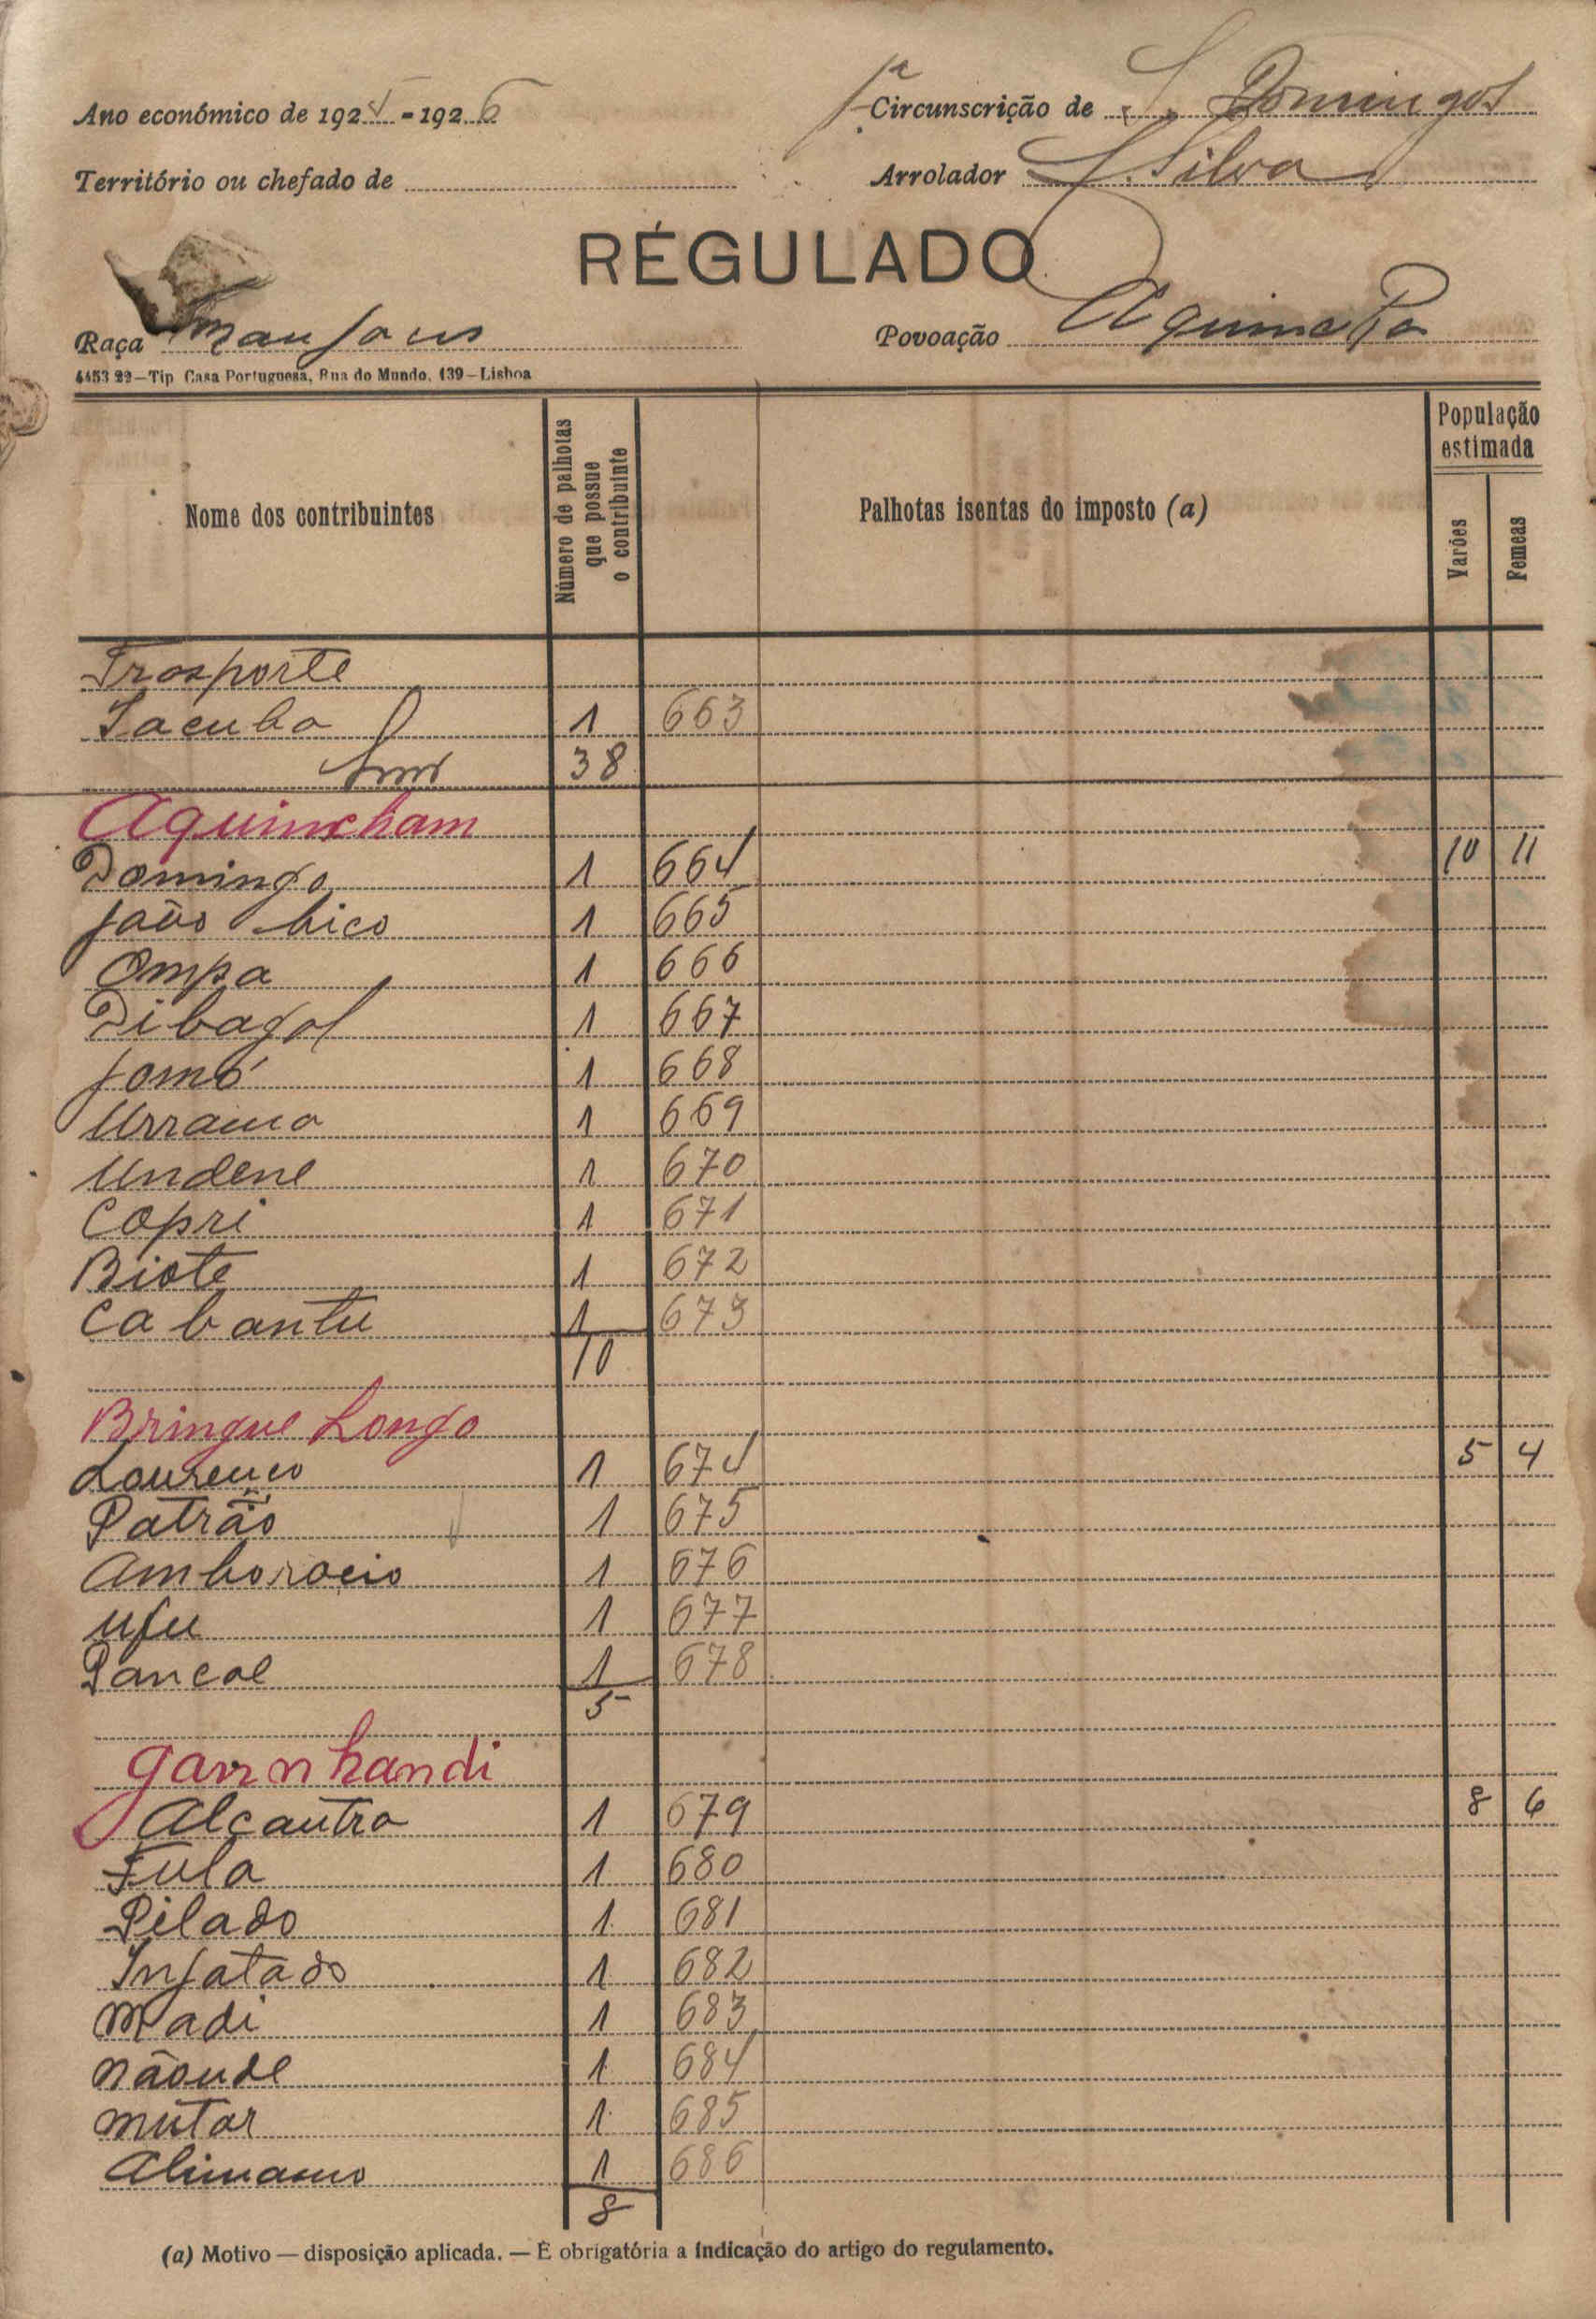 Ano económico de 1925-1926
1ª Circunscrição de S. Domingos
Território ou chefado de
Arrolador S. Silva
RÉGULADO
Raça Manjacus
Povoação
4453 22—Tip Casa Portuguesa, Rua do Mundo, 139—Lisboa
Nome dos contribuintes
Número de palhotas que possue o contribuinte
Palhotas isentas do imposto (a)
População estimada
Varões
Femeas
Trosporte
Iacuba 1 663
38
Aquincham
Domingo 1 664 10 11
João bico 1 665
Ompa 1 666
Dibagol 1 667
Jomó 1 668
1 669
Undene 1 670
Copri 1 671
Biote 1 672
Cabantu 1 673
10
Bringue Longo
Lourenco 1 674 5 4
Patrão 1 675
Amborocio 1 676
Ufu 1 677
Pancal 1 678
5
Garnnhandi
Alcantra 1 679 8 6
Fula 1 680
Pilado 1 681
Infatado 1 682
Madi 1 683
Nãoude 1 684
Mutar 1 685
Alimamo 1 686
8
(a) Motivo — disposição aplicada. — É obrigatória a indicação do artigo do regulamento.